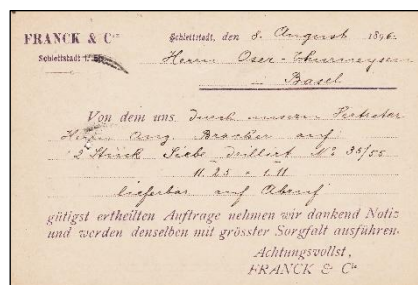 FRANCK & Cie
Schlettstadt i/Els.
Schlettstadt, den 8. August 1896
Herrn Oser-Thurneysen
Basel
Von dem uns durch unsern Vertreter
Herrn Aug. Brocher auf
2 Stück Siebe drilliert No 35/55
lieferbar auf Abruf
gütigst ertheilten Auftrage nehmen wir dankend Notiz
und werden denselben mit grösster Sorgfalt ausführen.
Achtungsvollst,
FRANCK & Cie